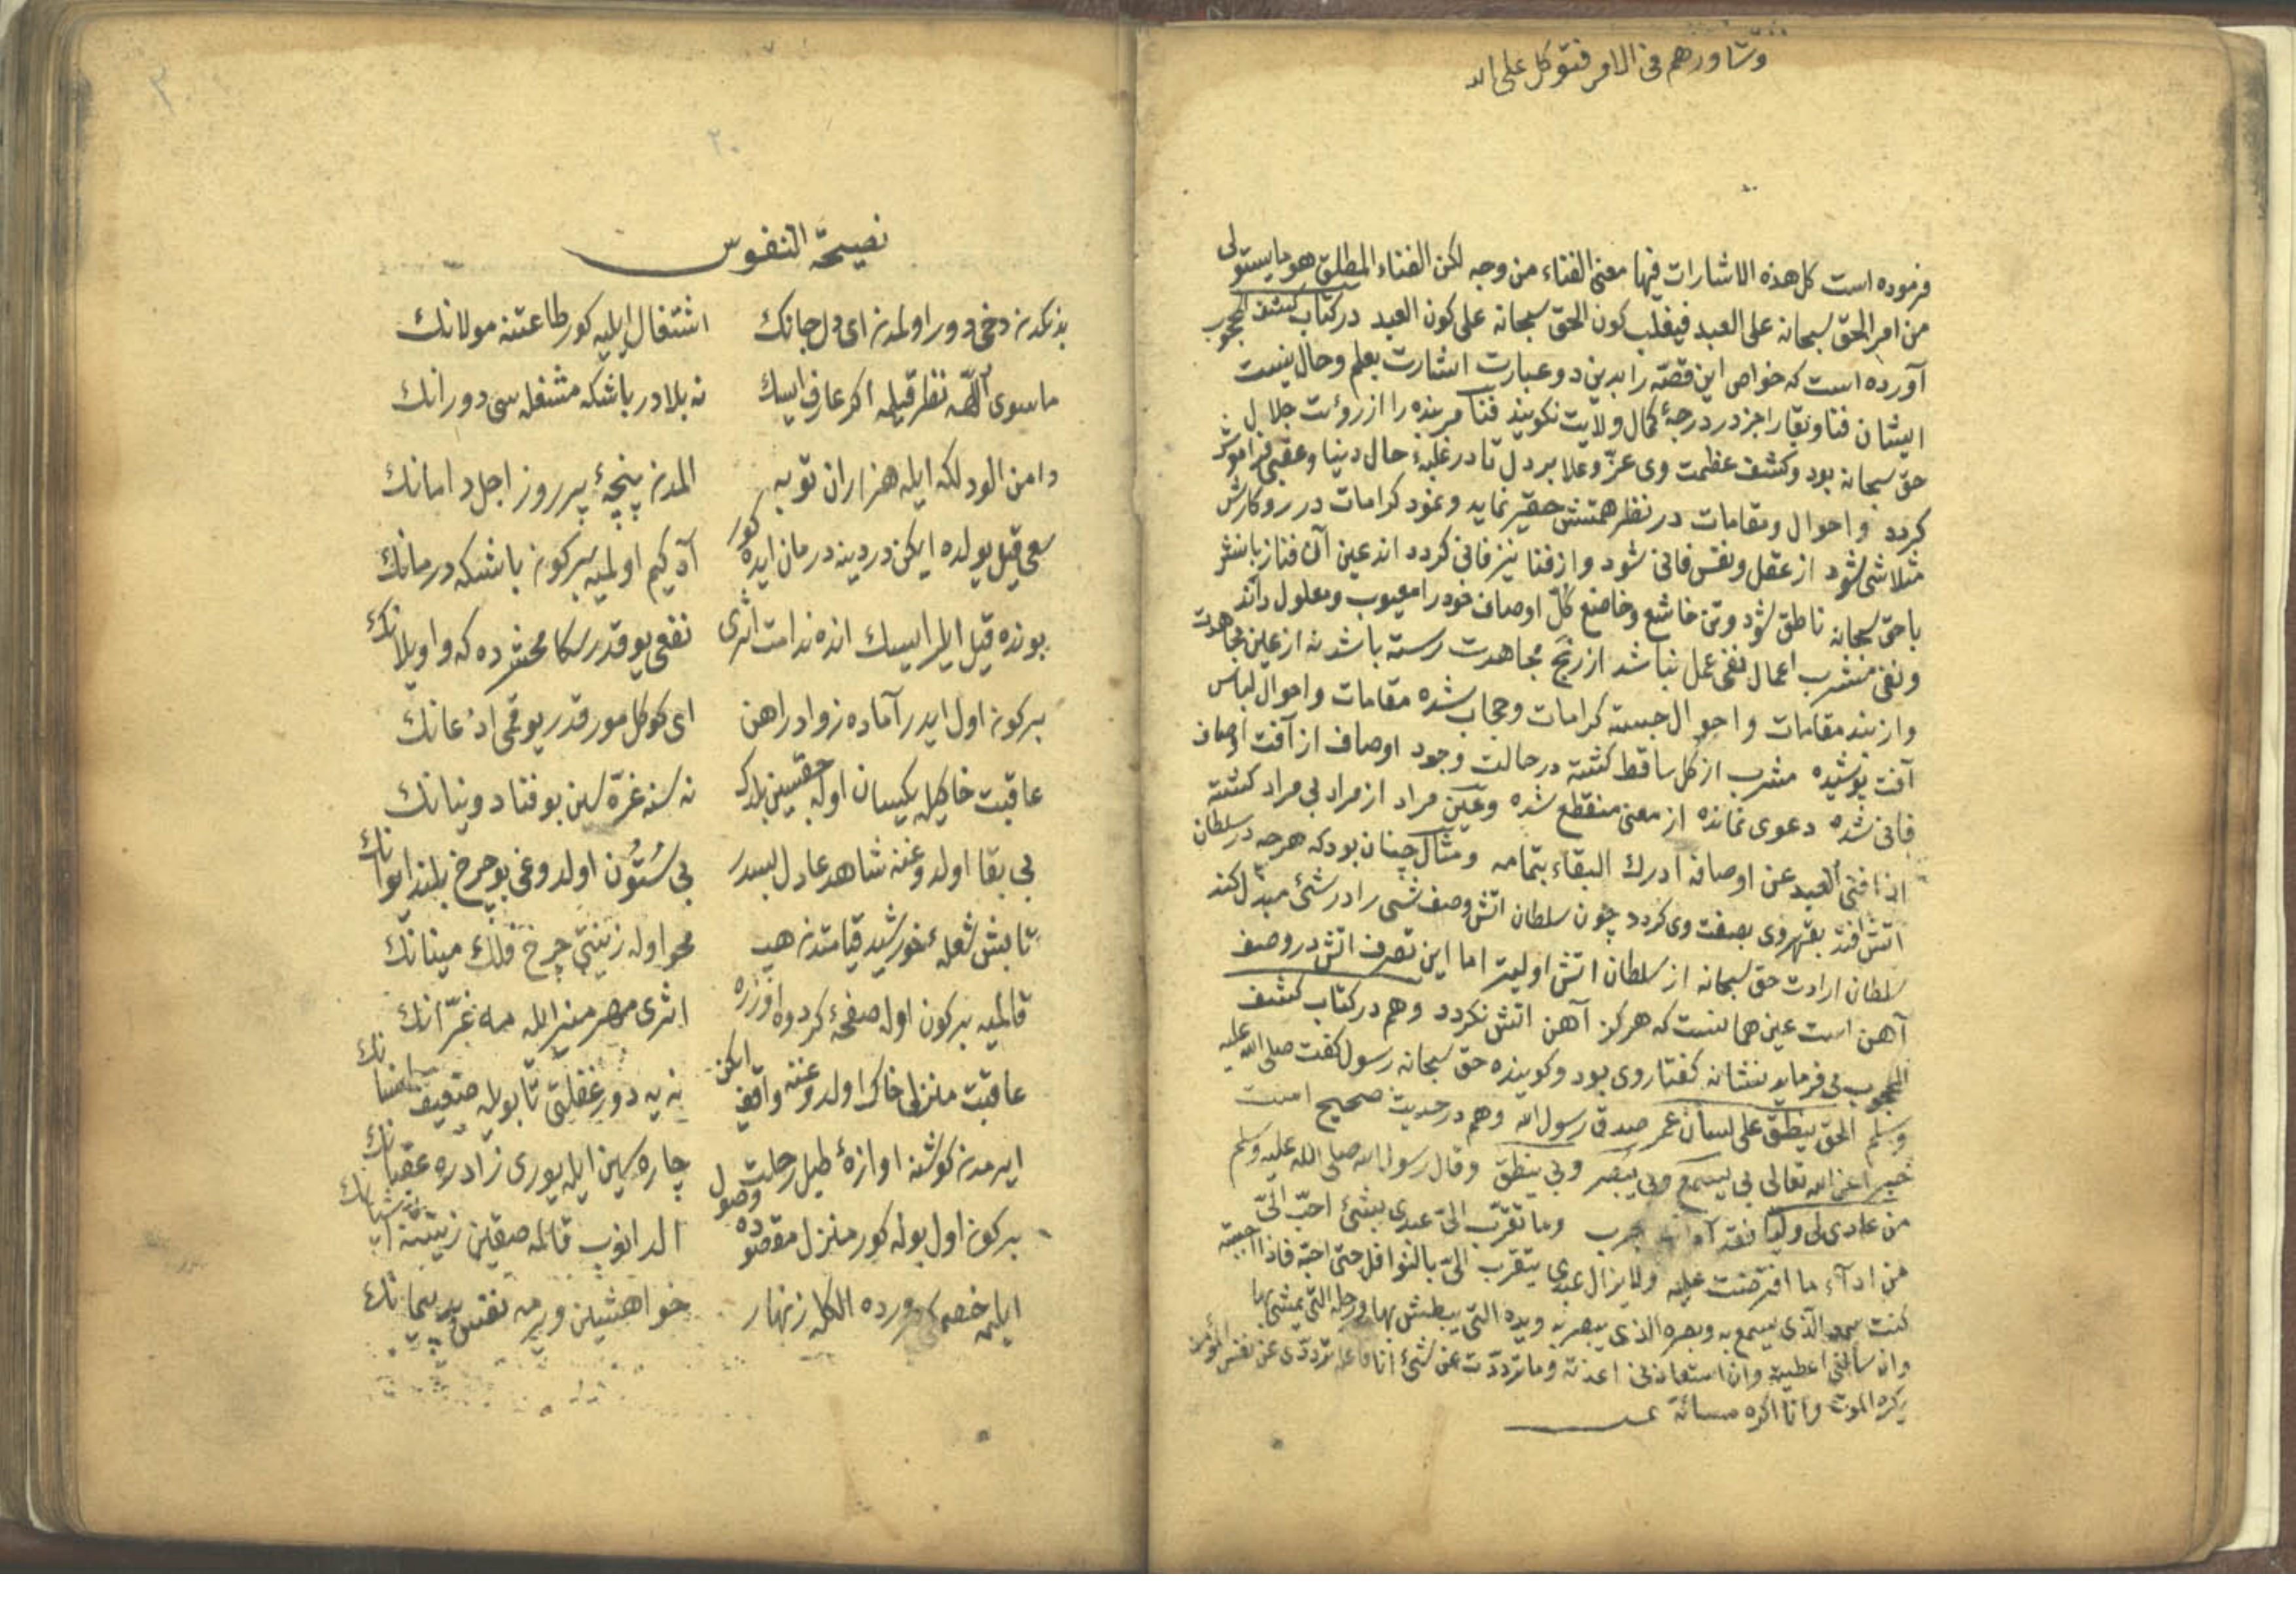 وشاورهم فی الامر فتوکل علی الله
فرموده است کل هذه الاشارات فیها معنی الفناء من وجه لکن الفناء المطلق هو ما یستولی
من امر الحق سبحانه علی العبد فیغلب کون الحق سبحانه علی کون العبد در کتاب کشف المحجوب
آورده است که خواص این قصّه را بدین دو عبارت اشارت بعلم و حال نیست
ایشان فنا و بقا را جز در درجۀ کمال ولایت نکویند فنا مر بنده را از رؤیت جلال
حق سبحانه بود و کشف عظمت وی عزّ و علا بر دل تا در غلبۀ حال دنیا و عقبی فراموش
کردد و احوال و مقامات در نظر همتش حقیر نماید و نمود کرامات در روکارش
متلاشی شود از عقل و نفس فانی شود و از فنا نیز فانی کردد اندر عین آن فنا زبانش
با حق سبحانه ناطق شود و تن خاشع و خاضع کلّ اوصاف خود را معیوب و معلول داند
و نفی مشرب اعمال نفی عمل نباشد از رنج مجاهدت رسته باشد نه از عین مجاهدت
و از بند مقامات و احوال جسته کرامات و حجاب شده مقامات و احوال لباس
آفت پوشیده مشرب از کل ساقط کشته در حالت وجود اوصاف از آفت اوصاف
فانی شده دعوی نمانده از معنی منقطع شده و عین مراد از مراد بی مراد کشته
اذا فنی العبد عن اوصافه ادرک البقاء بتمامه و مثال چنان بود که هرچه در سلطان
اتش افتد بقهر وی بصفت وی کردد چون سلطان اتش وصف شیء را در شیء مبدّل کند
سلطان ارادت حق سبحانه از سلطان اتش اولیتر اما این تصرف اتش در وصف
آهن است عین همانست که هرکز آهن اتش نکردد و هم در کتاب کشف
المحجوب می فرماید نشانه کفتار وی بود و کوینده حق سبحانه رسول کفت صلی الله علیه
وسلم الحق ینطق علی لسان عمر صدق رسول الله و هم در حدیث صحیح است
خبرا عن الله تعالی بی یسمع و بی یبصر و بی ینطق وقال رسول الله صلی الله علیه وسلم
من عادی لی ولیّا فقد وما تقرّب الیّ عبدی بشیء احبّ الیّ
من ادآء ما افترضت علیه ولا یزال عبدی یتقرب الیّ بالنوافل حتی احبّه فاذا احببته
کنت سمعه الّذی یسمع به وبصره الذی یبصر به ویده الّتی یبطش بها ورجله الّتی یمشی بها
وان سألنی اعطیته وان استعاذنی اعذته وما تردّدت عن شیء انا فاعله تردّدی عن نفس المؤمن
یکره الموت وانا اکره مسائته
نصیحة النفوس
بدنکدن دخی دور اولمدن ای دل جانک اشتغال ایلیه کور طاعتنه مولانک
ماسوی اللّٰهه نظر قیلمه اکر عارف ایسک نه بلادر باشکه مشغله سی دورانک
دامن الودلکه ایله هزاران توبه المدن پنچۀ بر روز اجل دامانک
سعی قیل یولده ایکن دردینه درمان ایده کور آه کیم اولمیه بر کون باشکه درمانک
بونده قیل ایلر ایسک انده ندامت اثری نفعی یوقدر سکا محشرده که واویلانک
بر کون اول ایدر آماده زواد راهن ای کوکل مور قدر یوقمی اذعانک
عاقبت خاکیله یکسان اوله جقسین بلرک نه سنه غرّه سن بو فنا دونیانک
بی بقا اولدوغنه شاهد عادل بسدر بی ستون اولدوغی بو چرخ بلند ایوانک
تابش شعلۀ خورشید قیامتدن هب محو اوله زینتی چرخ فلک مینانک
قالمیه بر کون اوله صفحۀ کردون اوزره اثری مهر منیر ایله مه غرّانک
عاقبت منزلی خاک اولدوغنه واقف ایکن نه یه دور غفلتی تا بویله ضعیف انسانک
ایرمدن کوشنه اوازۀ طبل رحلت چاره سین ایله یوری زاد ره عقبانک
بر کون اول بوله کور منزل مقصوده وصول الدانوب قالمه صقین زینتنه
ایلمه خصمکی الکله زنهار خواهشین ویرمه نفس بد پیمانک